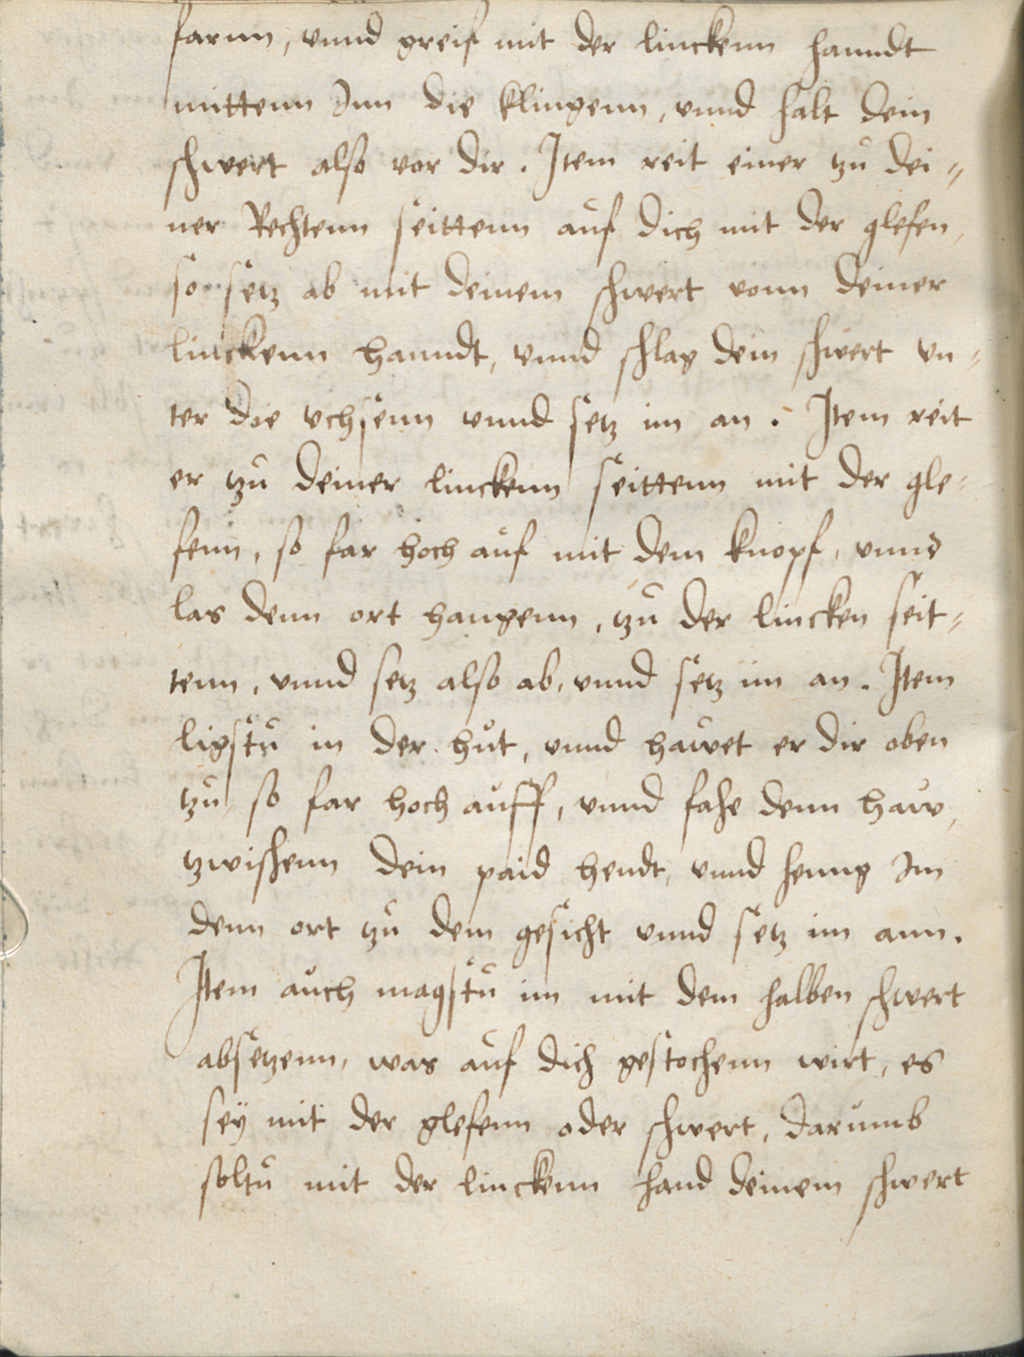 farnn, vnnd greif mit der linckenn hanndt
mittenn Inn die klingenn, vnnd halt dein
schwert also vor dir. Item reit einer tzů dei=
ner Rechtenn seittenn aůf dich mit der glefen,
so setz ab mit deinem schwert vonn deiner
linckenn hanndt, vnnd schlag dein schwert vn=
ter die vchsenn vnnd setz im an. Item reit
er tzů deiner linckenn seittenn mit der gle=
fenn, so far hoch aůf mit dem knopf, vnnd
las denn ort hangenn, tzů der lincken seit=
tenn, vnnd setz also ab, vnnd setz im an. Item
ligstů in der hůt, vnnd haůwet er dir oben
tzů so far hoch aůff, vnnd fahe denn haůw,
tzwischenn dein paid hendt, vnnd heng Im
denn ort tzů dem gesicht vnnd setz im ann.
Item aůch magstů im mit dem halben schwert
absetzenn, was aůf dich gestochenn wirt, es
seÿ mit der glefenn oder schwert, darůmb
soltů mit der linckenn hand deinem schwert